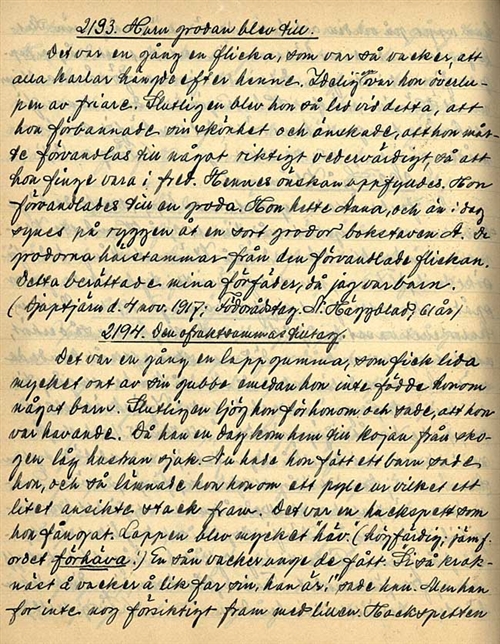 2193. Huru grodan blev till.
Det var en gång en flicka, som var så vacker, att
alla karlar hängde efter henne. Ideligen var hon överlu-
pen av friare. Slutligen blev hon så led vid detta, att
hon förbannade sin skönhet och önskade, att hon måt-
te förvandlas till något riktigt vedervärdigt, så att
hon finge vara i fred. Hennes önskan uppfylldes. Hon
förvandlades till en groda. Hon hette Anna, och än i dag
synes på ryggen åt en sort grodor bokstaven A. De
grodorna härstammar från den förvandlade flickan.
Detta berättade mina förfäder, då jag var barn.
d. 4 nov. 1917; N. Häggblad, 61 år)
2194. Den oaktsamma
Det var en gång en lappgumma, som fick lida
mycket ont av sin gubbe emedan hon inte födde honom
något barn. Slutligen ljög hon för honom och sade, att hon
var havande. Då han en dag kom hem till kojan från sko-
gen låg hustrun sjuk. Nu hade hon fått ett barn sade
hon, och så lämnade hon honom ett pyle ur vilket ett
litet ansikte stack fram. Det var en hackspett som
hon fångat. Lappen blev mycket "häv". (högfärdig; jämf.
ordet förhäva!) En sån vacker unge de fått. "Si så krok-
näst å vacker å lik far sin, han är!" sade han. Men han
for inte nog försiktigt fram med liten. Hackspetten